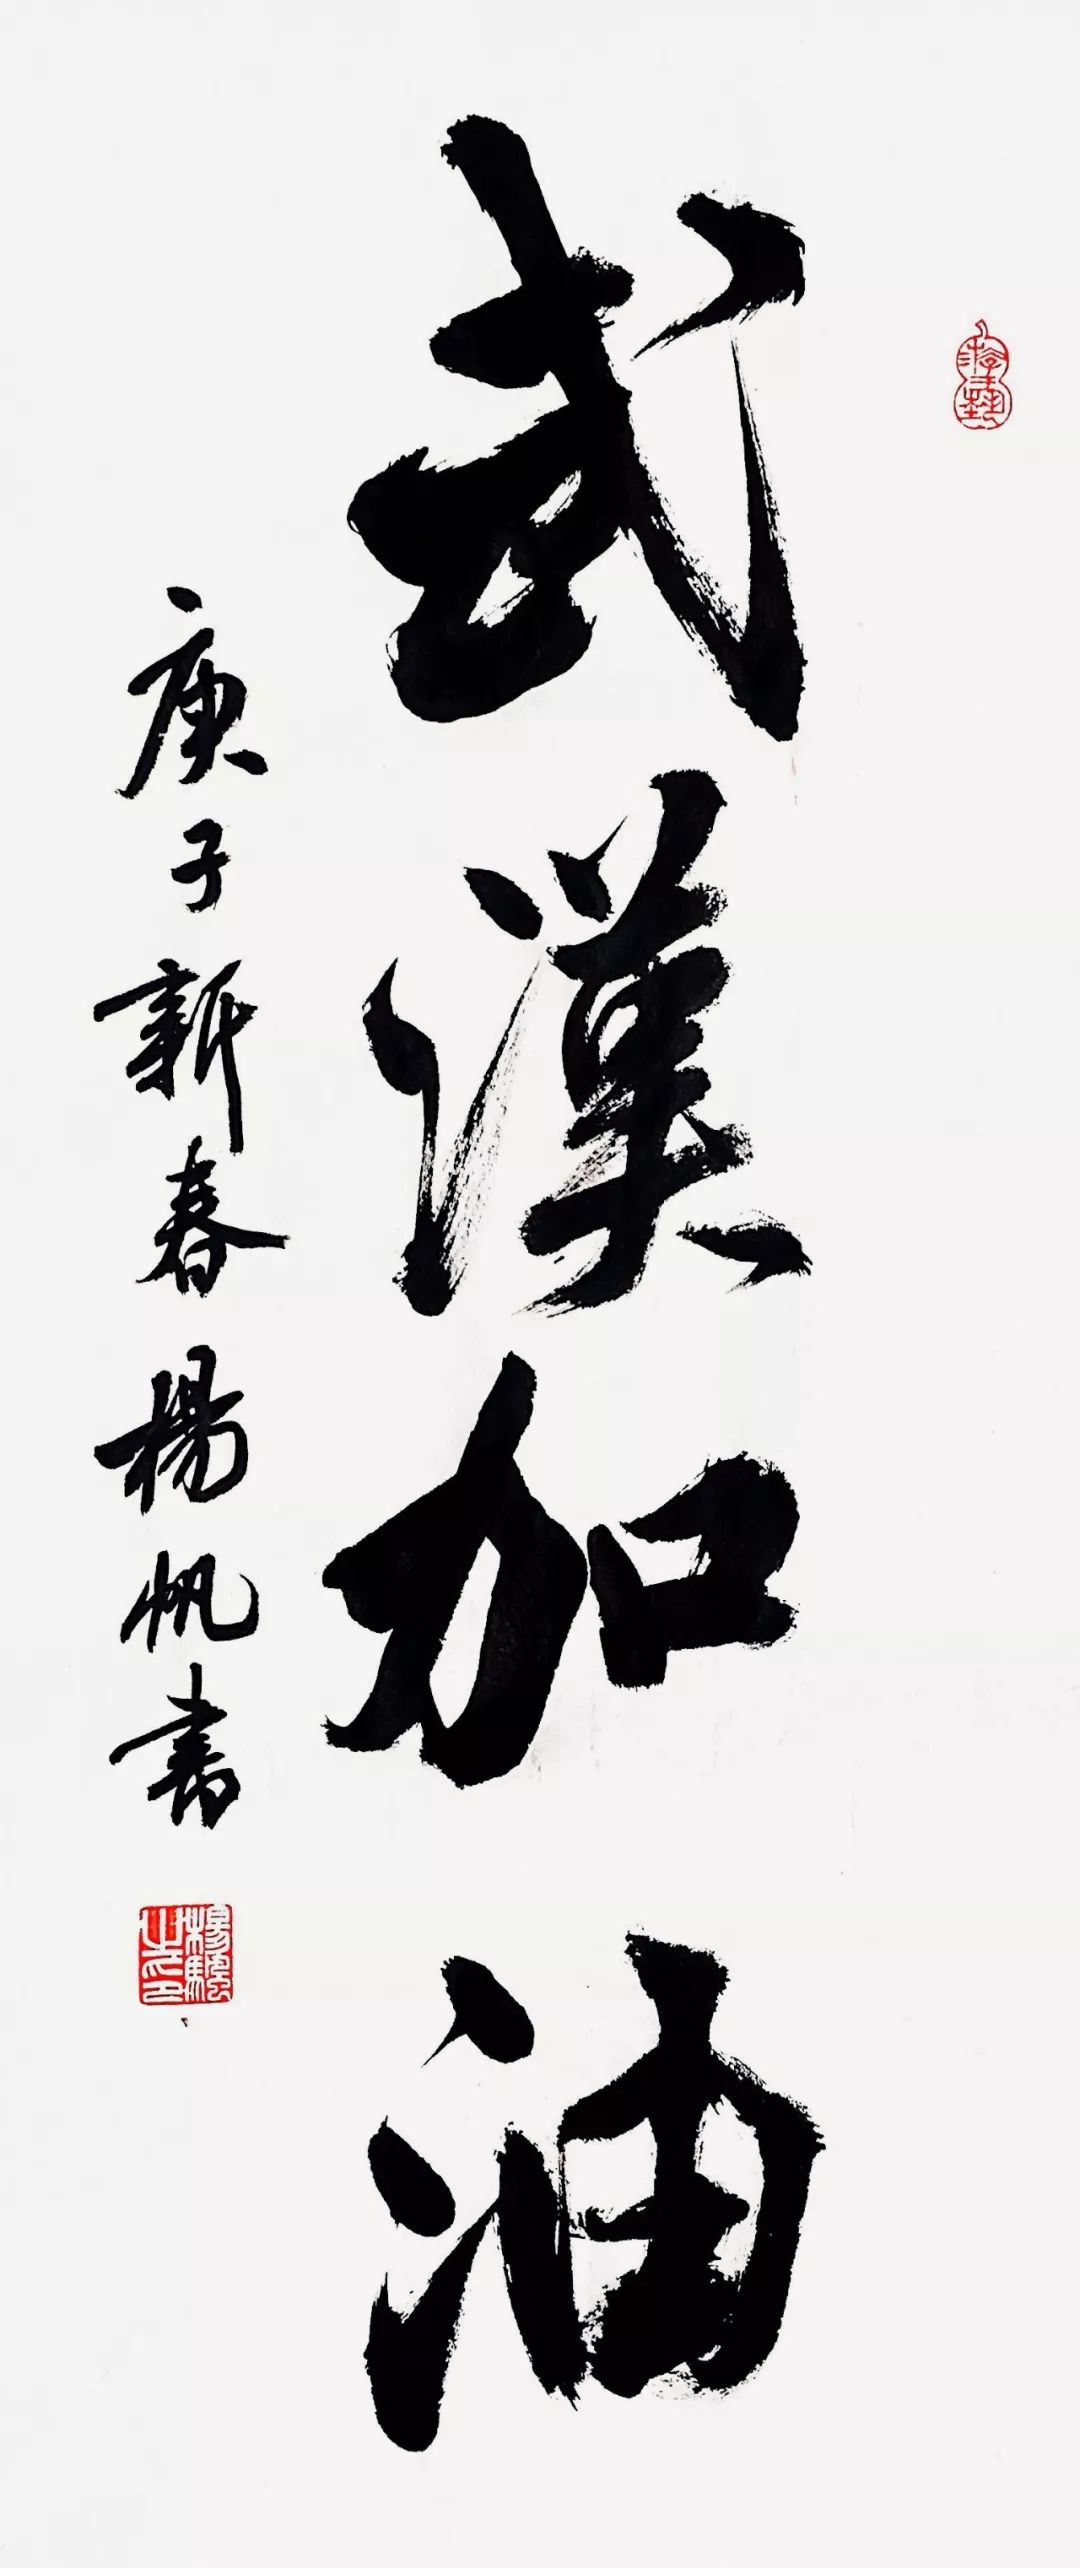 武漢加油
庚子新春楊帆書